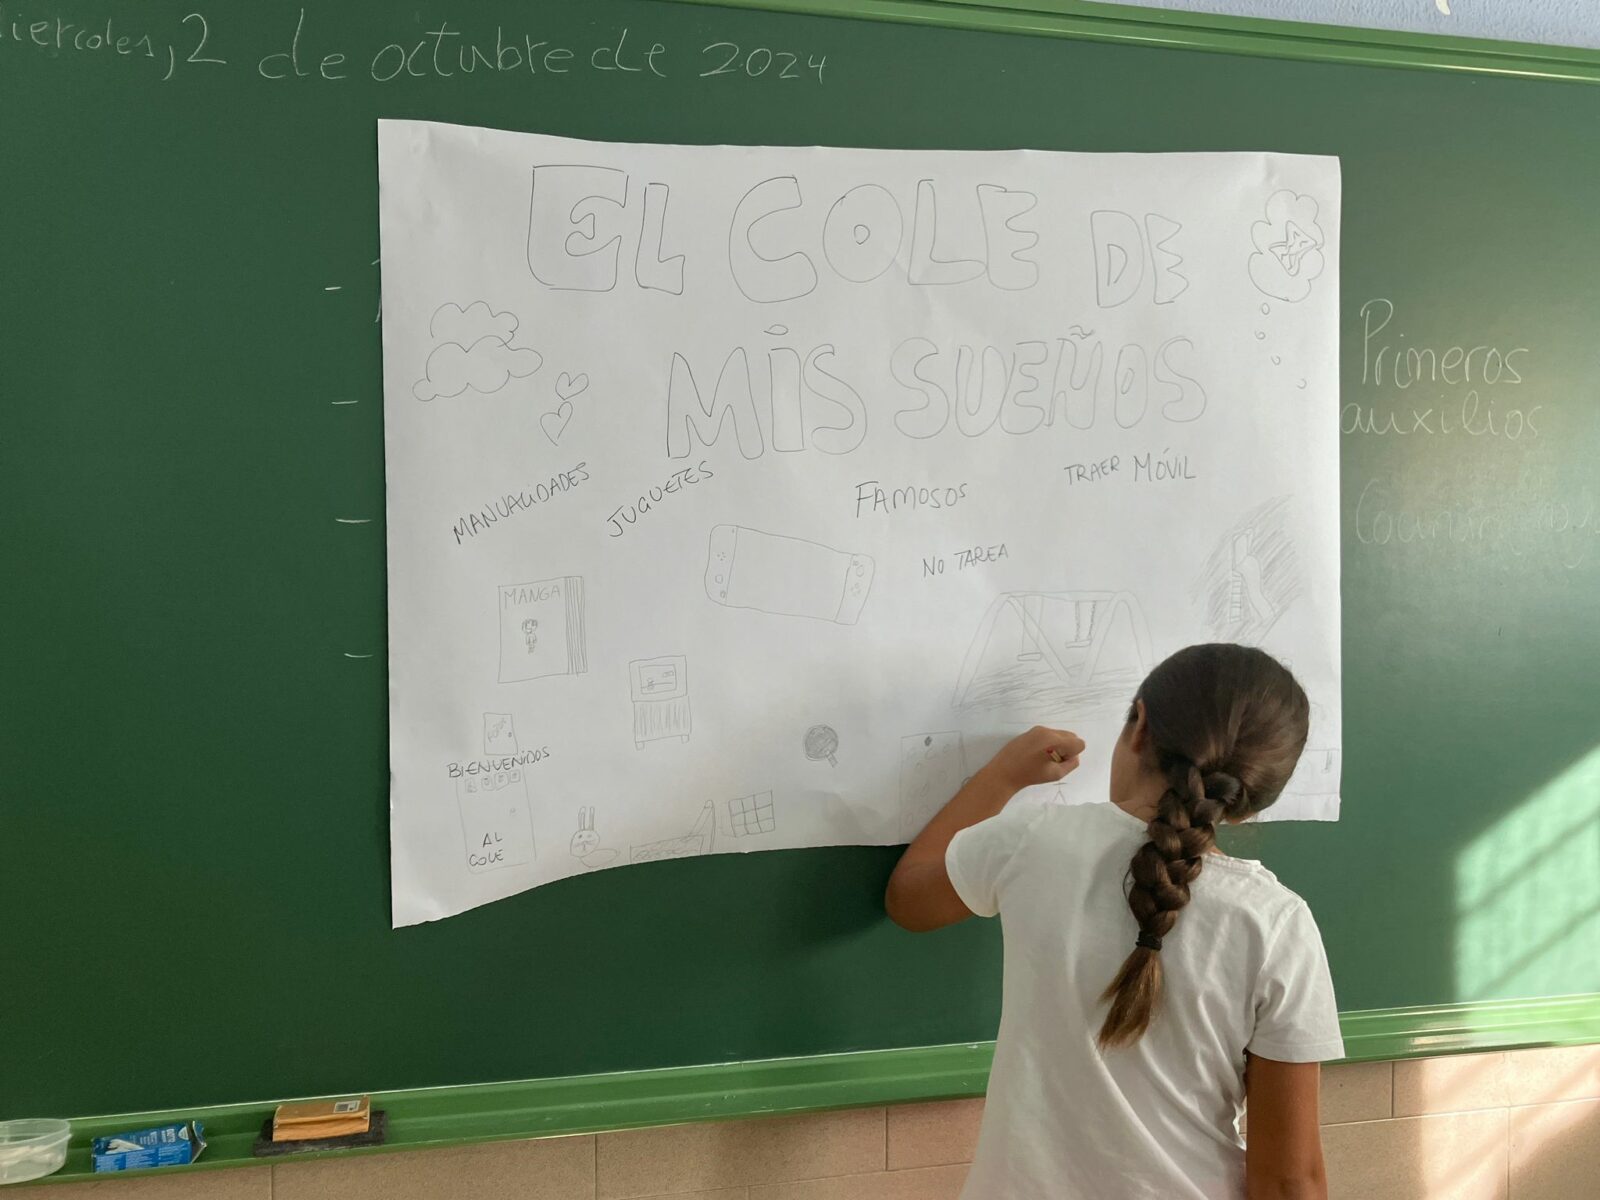 miercoles, 2 de octubre de 2024
EL COLE DE
MIS SUEÑOS
MANUALIDADES
JUGUETES
FAMOSOS
TRAER MÓVIL
NO TAREA
MANGA
BIENVENIDOS
AL
COLE
Primeros
auxilios